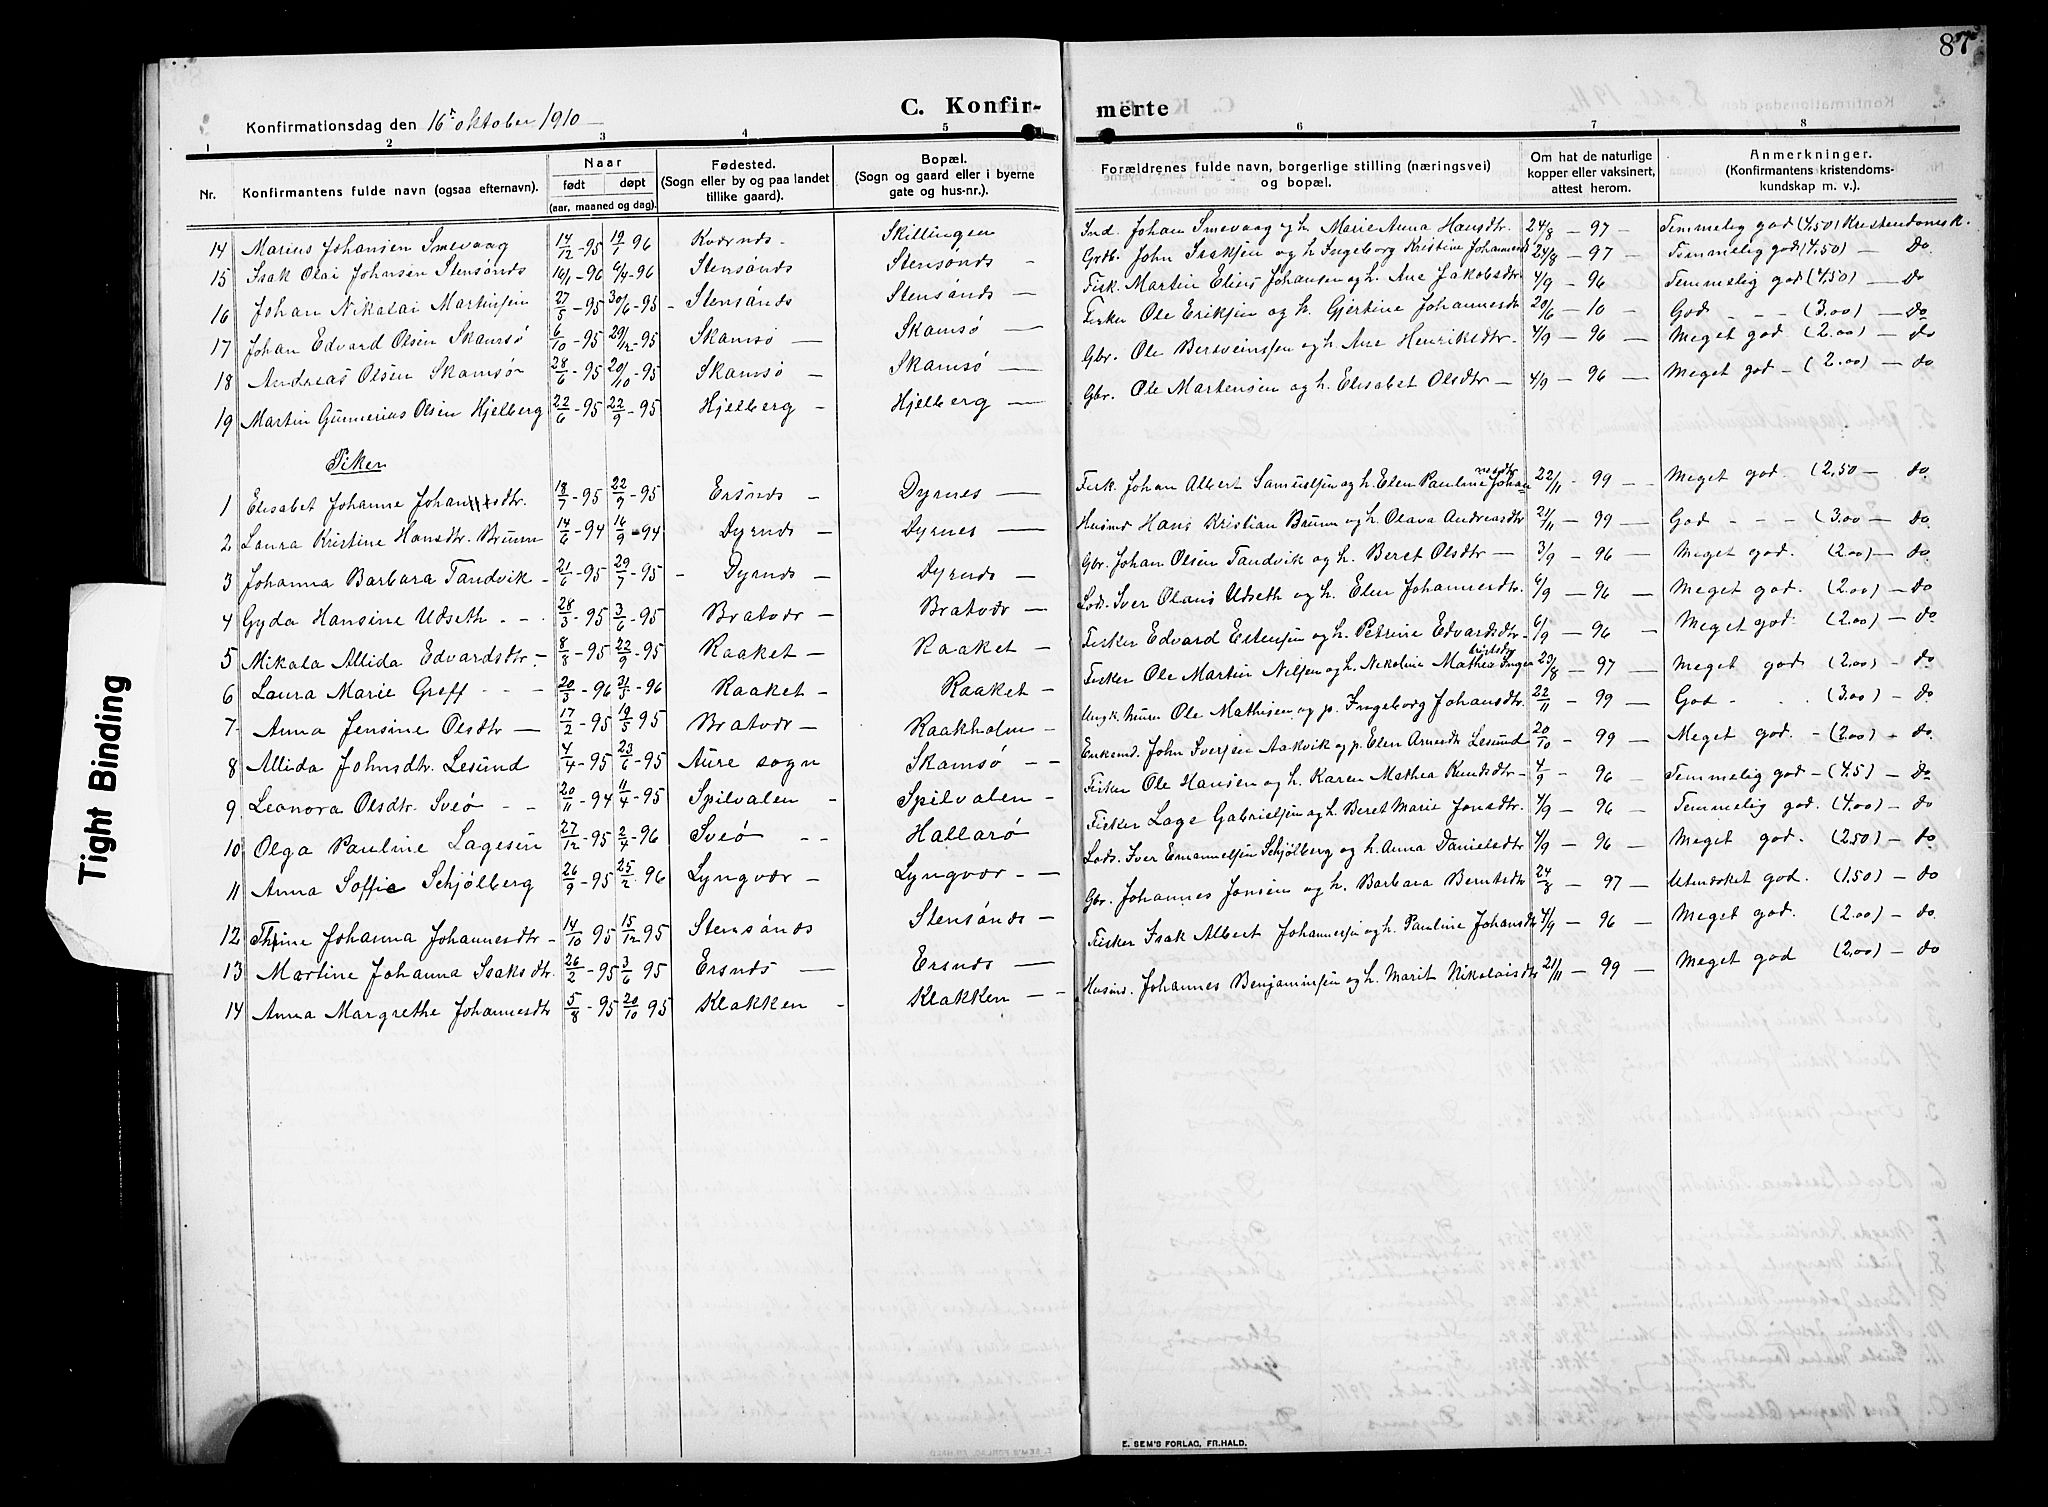 87
Konfirmationsdag den 16 oktober 1910
C. Konfir-merte
1 2 3 4 5 6 7 8
Nr. Konfirmantens fulde navn (ogsaa efternavn). Naar født døpt (aar, maaned og dag). Fødested. (Sogn eller by og paa landet tillike gaard). Bopæl. (Sogn og gaard eller i byerne gate og hus-nr.). Forældrenes fulde navn, borgerlige stilling (næringsvei) og bopæl. Om hat de naturlige kopper eller vaksinert, attest herom. Anmerkninger. (Konfirmantens kristendoms-kundskap m. v.).
14 Marius Johansen Smevaag 14/12-95 19/7 96 Kvernes - Skillingen Ind. Johan Smevaag og h. Marie Anna Hansdtr. 24/8 - 97 - Temmelig god (4,50) Kristendomsk.
15 Isak Olai Johnsen Stensønes 16/1-96 6/4-96 Stensønes Stensønes - Grdb. John Isaksen og h. Ingeborg Kristine Johannesd 24/8 - 97 - Temmelig god (4,50) - Do
16 Johan Nikolai Martinsen 27/5-95 30/6-95 - Stensønes Stensønes - Fisk. Martin Elias Johansen og h. Ane Jakobsdtr. 4/9 - 96 Temmelig god (4,50) - Do
17 Johan Edvard Olsen Skamsø 6/10-95 29/12-95 Skamsø - Skamsø - Fisker Ole Eriksen og h. Gjertine Johannesdtr 20/6 - 10 - God - - (3.00) - Do
18 Andreas Olsen Skamsø 28/6-95 20/10-95 Skamsø - Skamsø - Gbr. Ole Bersveinsen og h. Ane Henriksdtr. 4/9 - 96 - Meget god (2.00) - do
19 Martin Gunnerius Olsen Hjelberg 22/6-95 22/9-95 Hjelberg - Hjelberg - Gbr. Ole Martensen og h. Elisabet Olsdtr - 4/9 - 96 - Meget god - (2.00) - do
Piker
1 Elisabet Johanne Johansdtr. 18/7-95 22/9-95 Ersnes - Dyrnes - Fisk. Johan Albert Samuelsen og h. Elen Pauline Johannesdtr 22/11 - 99 - Meget god. (2,50 - do
2 Laura Kristine Hansdtr. Bruun 14/6-94 16/9-94 Dyrnes - Dyrnes - Husmd Hans Kristian Bruun og h. Olava Andreasdtr 21/11 - 99 - God - - - (3.00 - Do
3 Johanna Barbara Tandvik - 21/6-95 29/7-95 - Dyrnes - Dyrnes - Gbr. Johan Olsen Tandvik og h. Beret Olsdtr - 3/9 - 96 - Meget god. (2.00) - do
4 Gyda Hansine Udseth - - 28/3-95 3/6-95 Bratvær - Bratvær - Lods. Iver Olaus Udseth og h. Elen Johannesdtr. 6/9 - 96 - Meget god. (2.00) - do
5 Mikala Allida Edvardsdtr. - 8/8-95 22/9-95 Raaket - Raaket - Fisker Edvard Estensen og h. Petrine Edvardsdtr - 6/9 - 96 - Meget god. (2.00) - do
6 Laura Marie Greff - - - 20/3-96 31/5-96 Raaket - Raaket - Fisker Ole Martin Nilsen og h. Nikoline Mathea 23/8 - 97 - Meget god (2.00) - do
7 Anna Jensine Olsdtr - 17/2-95 19/5 95 Bratvær - Raakholm - Ungk. Ole Mathisen og p. Ingeborg Johansdtr. 22/11 - 99 - God - . (3.00) - do
8 Allida Johnsdtr. Lesund 4/4-95 23/6-95 Aure sogn Skamsø - - Enkemd. John Iversen Aakvik og p. Elen Arnesdtr Lesund 20/10 - 99 - Meget god. - (2.00) - do
9 Leonora Olsdtr. Sveø - - 20/11-94 11/4-95 Spilvalen - Spilvalen - Fisker Ole Hansen og h. Karen Mathea Knudsdtr - 4/9 - 96 - Temmelig god - (4.5) - Do
10 Olga Pauline Lagesen 27/12-95 2/4-96 Sveø - - Hallarø Fisker Lage Gabrielsen og h. Beret Marie Jonsdtr. 4/9 - 96 - Temmelig god. (4.00) - do
11 Anna Soffie Schjølberg 26/9-95 25/2-96 Lyngvær - Lyngvær - - Lods. Iver Emanuelsen Schjølberg og h. Anna Danielsdtr 4/9 - 96 - Meget god. (2.50) - do
12 Thrine Johanna Johannesdtr - 14/10-95 15/12 95 Stensønes Stensønes - Gbr. Johannes Jonsen og h. Barbara Berntsdtr 24/8 - 97 - Utmerket god. (1.50) - do
13 Martine Johanna Isaksdtr. 26/2-95 3/6 95 Ersnes - Ersnes - Fisker Isak Albert Johannesen og h. Pauline Johansdtr 4/9 - 96 - Meget god. (2.00) - do
14 Anna Margrethe Johannesdtr 5/8-95 20/10 95 Klakken - Klakken - - Husmd. Johannes Benjaminsen og h. Marit Nikolaisdtr 21/11 - 99 - Meget god (2.00) - do
E. SEM'S FORLAG, FR.HALD.
Tight Binding